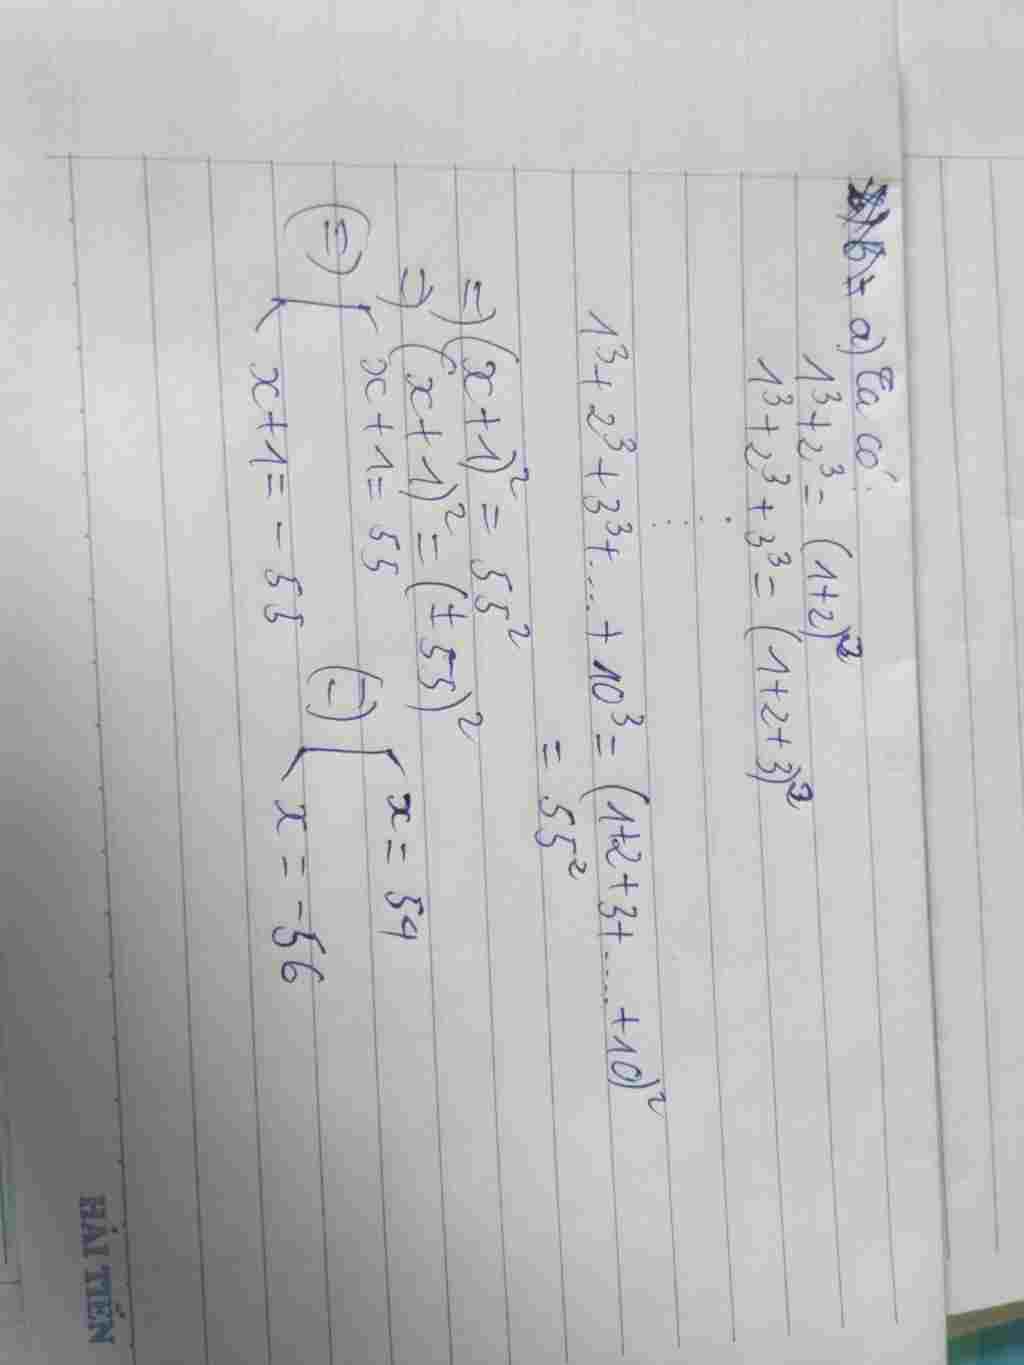 a) Ta có:
1³ + 2³ = (1+2)²
1³ + 2³ + 3³ = (1+2+3)²
⋮
1³ + 2³ + 3³ + .... + 10³ = (1+2+3+.....+10)²
= 55²
=) (x+1)² = 55²
=) (x+1)² = (± 55)²
(=) [ x+1 = 55 (=) [ x = 54
x+1 = - 55 x = -56
HẢI TIẾN